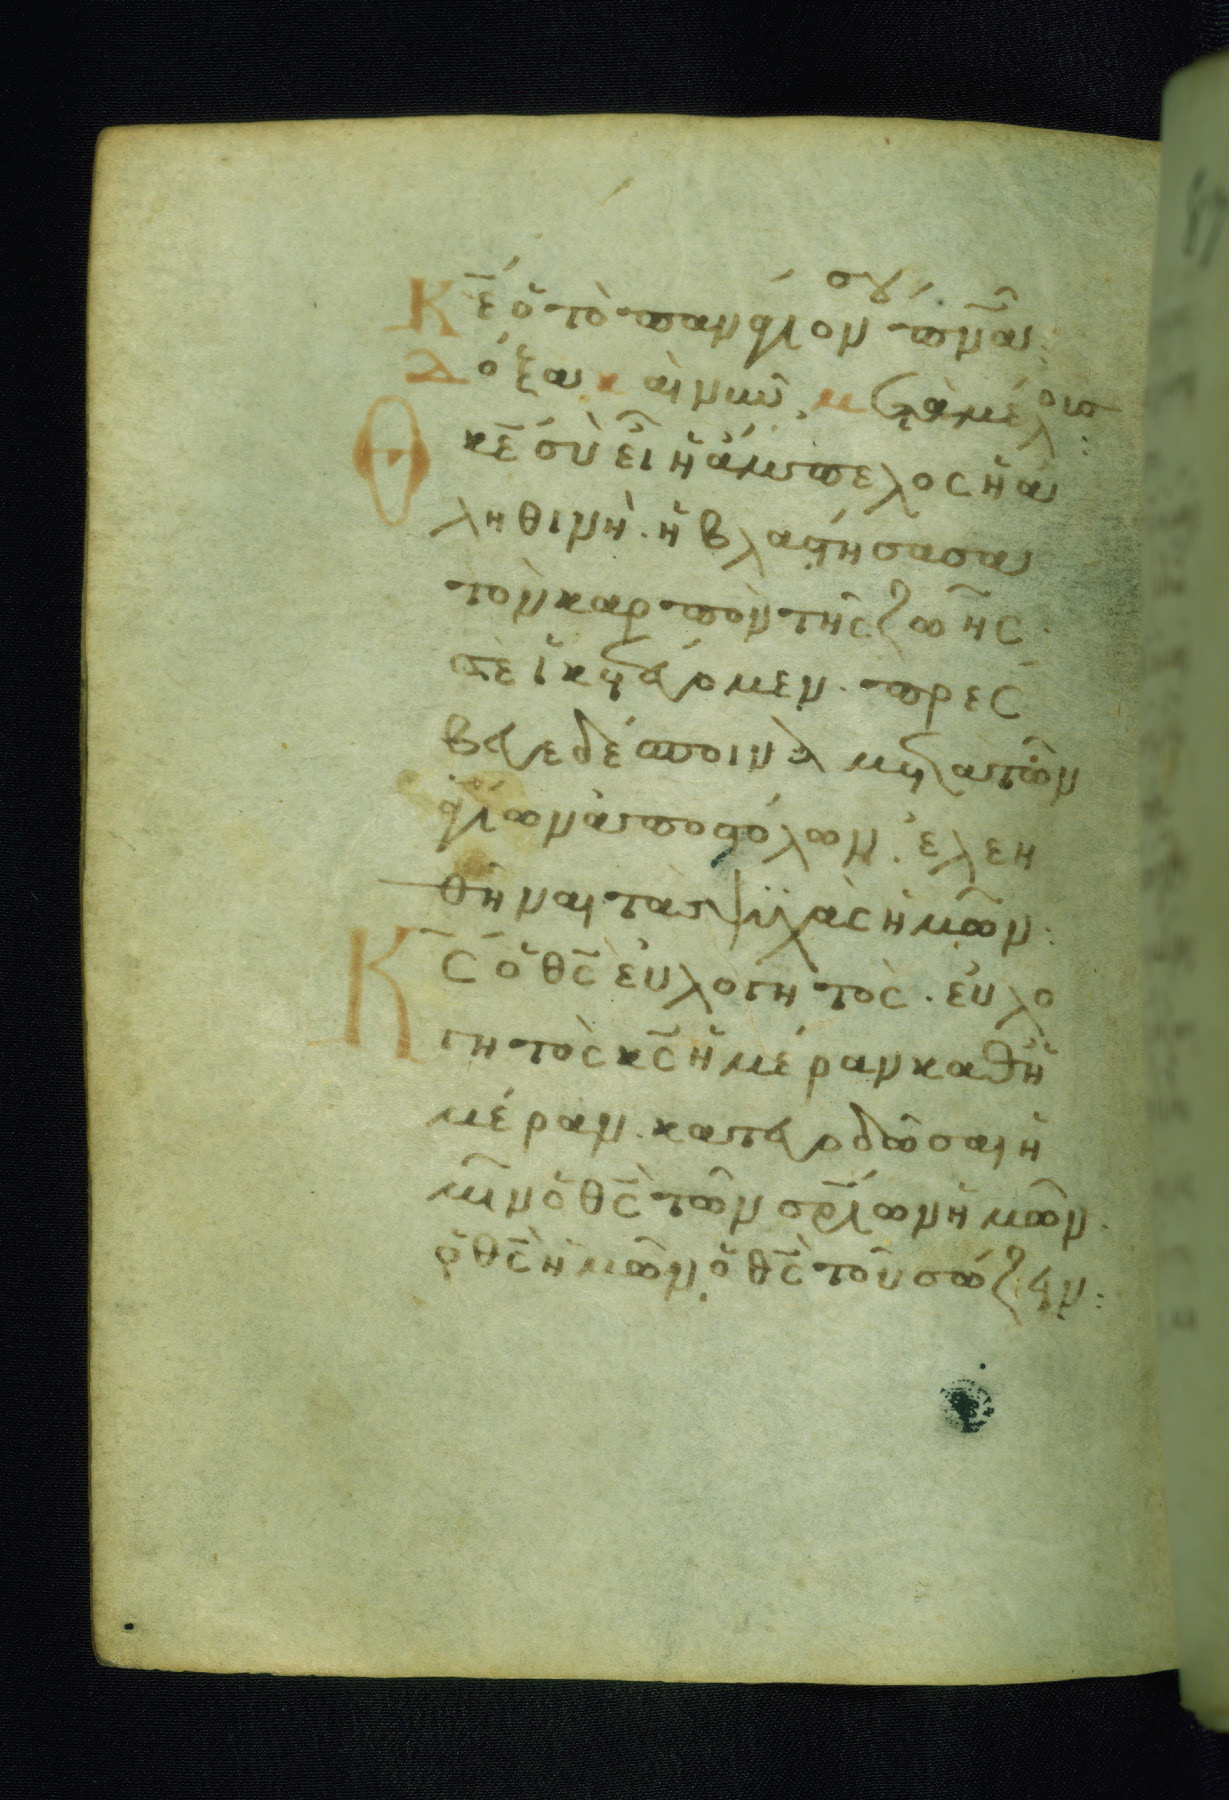 Κε̅ ὁ τὸ πανάγιον σου πν̅α:
Δόξα καὶ νῦν
Θκε̅ σὺ εἶ ἡ ἄμπελος ἡ ἀ
ληθινὴ. ἡ βλαστήσασα
τὸν καρπὸν τῆς ζωῆς.
σὲ ἱκετεύομεν. πρέσ
βευε δέσποινα μετὰ τῶν
ἁγίων ἀποστόλων. ἐλεη
θῆναι τὰς ψυχὰς ἡμῶν:
Κς̅ ὁ θς̅ εὐλογητὸς. εὐλο
γητὸς κς̅ ἡμέραν καθ' ἡ
μέραν. κατευοδῶσαι ἡ
μῖν ὁ θς̅ τῶν σρ̅ιων ἡμῶν.
ὁ θς̅ ἡμῶν ὁ θς̅ τοῦ σώζειν: